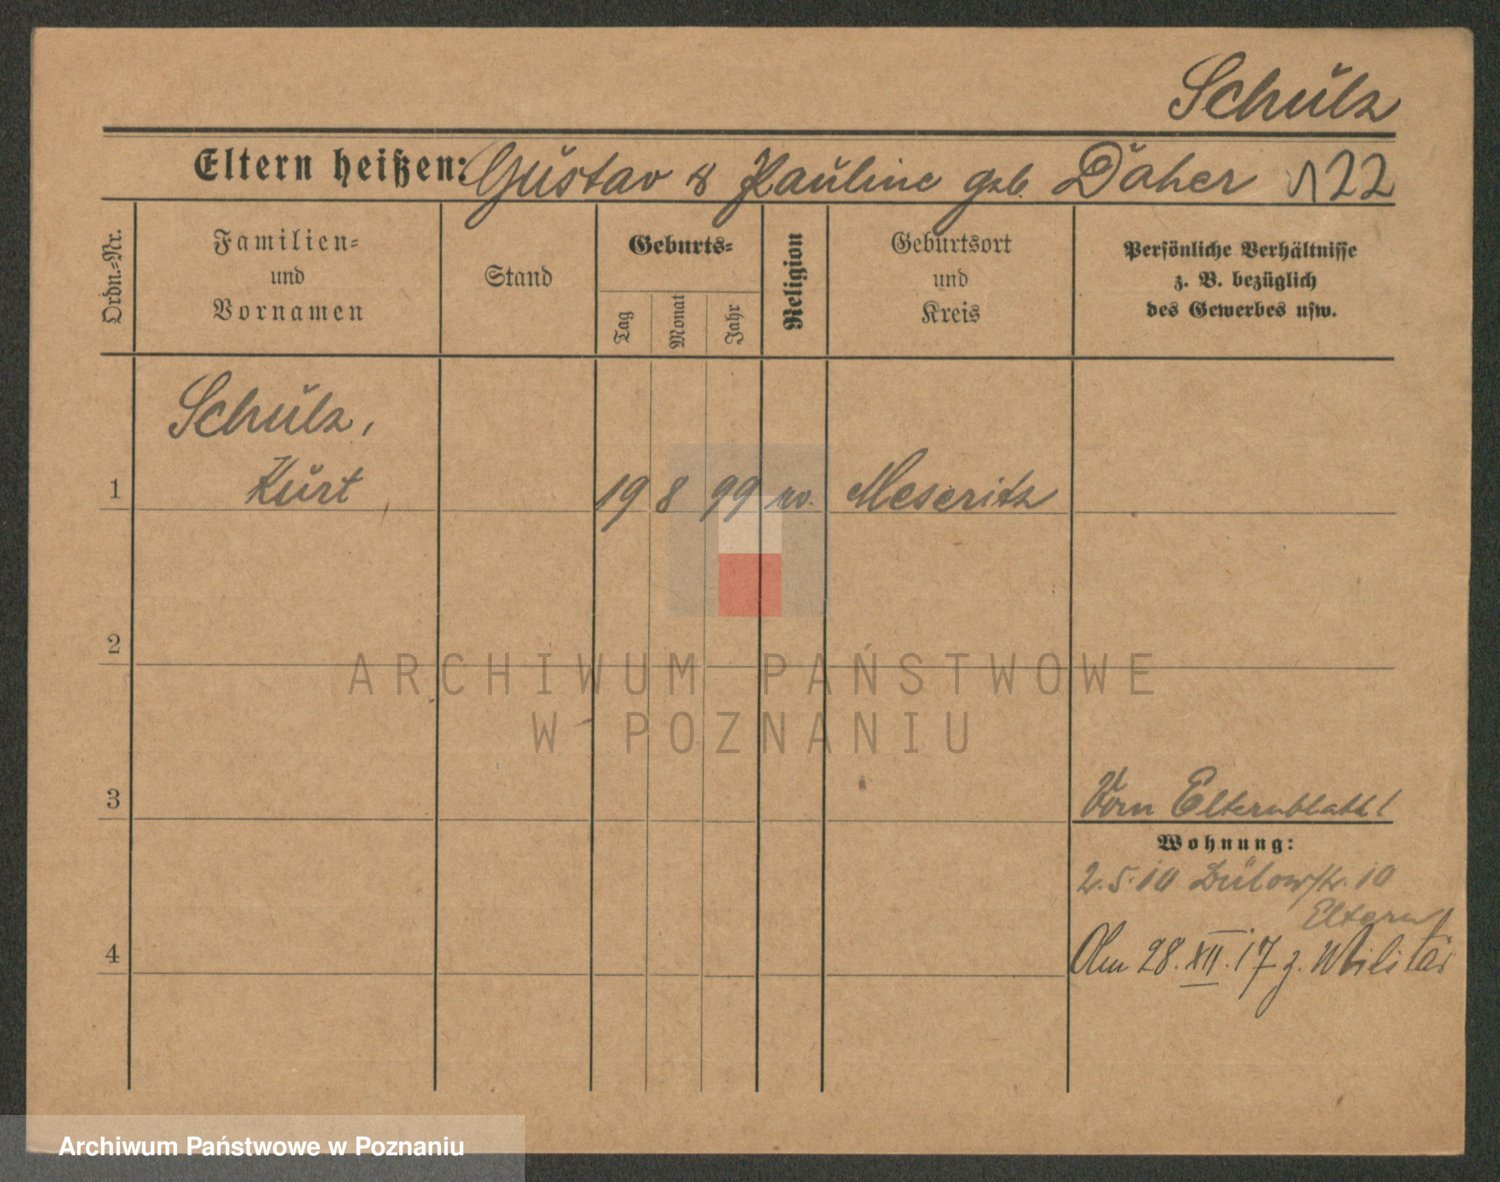 Schulz
Eltern heißen: Gustav & Pauline geb. Daher 122
Ordn.-Nr.
Familien-
und
Vornamen
Stand
Geburts-
Tag
Monat
Jahr
Religion
Geburtsort
und
Kreis
Persönliche Verhältnisse
z. B. bezüglich
des Gewerbes usw.
Schulz,
1 Kurt 19 8 99 ev. Meseritz
2
ARCHIWUM PAŃSTWOWE
W POZNANIU
3 Vom Elternblatt!
Wohnung:
2.5.10 Bülowstr. 10
Eltern
4 Am 28.XII.17 z. Militär
Archiwum Państwowe w Poznaniu